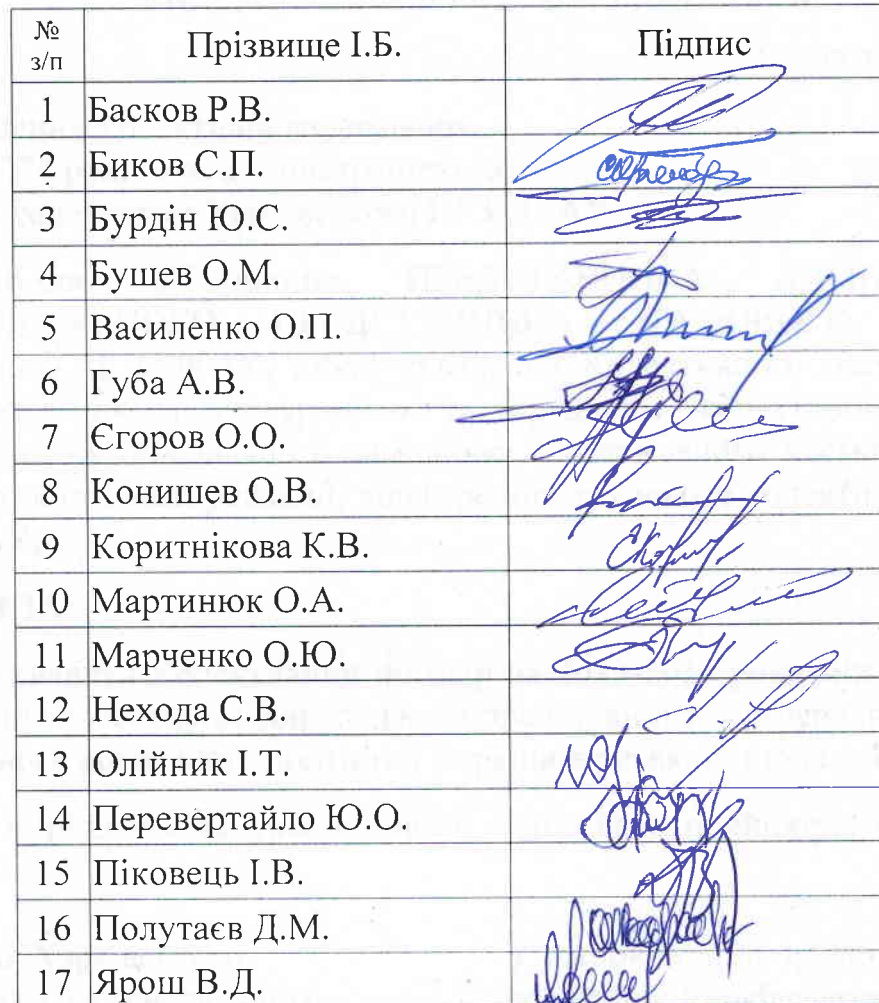 № з/п Прізвище І.Б. Підпис
1 Басков Р.В.
2 Биков С.П.
3 Бурдін Ю.С.
4 Бушев О.М.
5 Василенко О.П.
6 Губа А.В.
7 Єгоров О.О.
8 Конишев О.В.
9 Коритнікова К.В.
10 Мартинюк О.А.
11 Марченко О.Ю.
12 Нехода С.В.
13 Олійник І.Т.
14 Перевертайло Ю.О.
15 Піковець І.В.
16 Полутаєв Д.М.
17 Ярош В.Д.